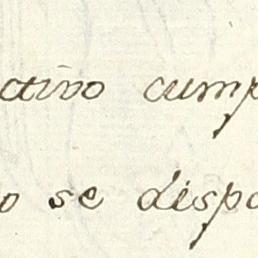 ctivo cump
o se dispo